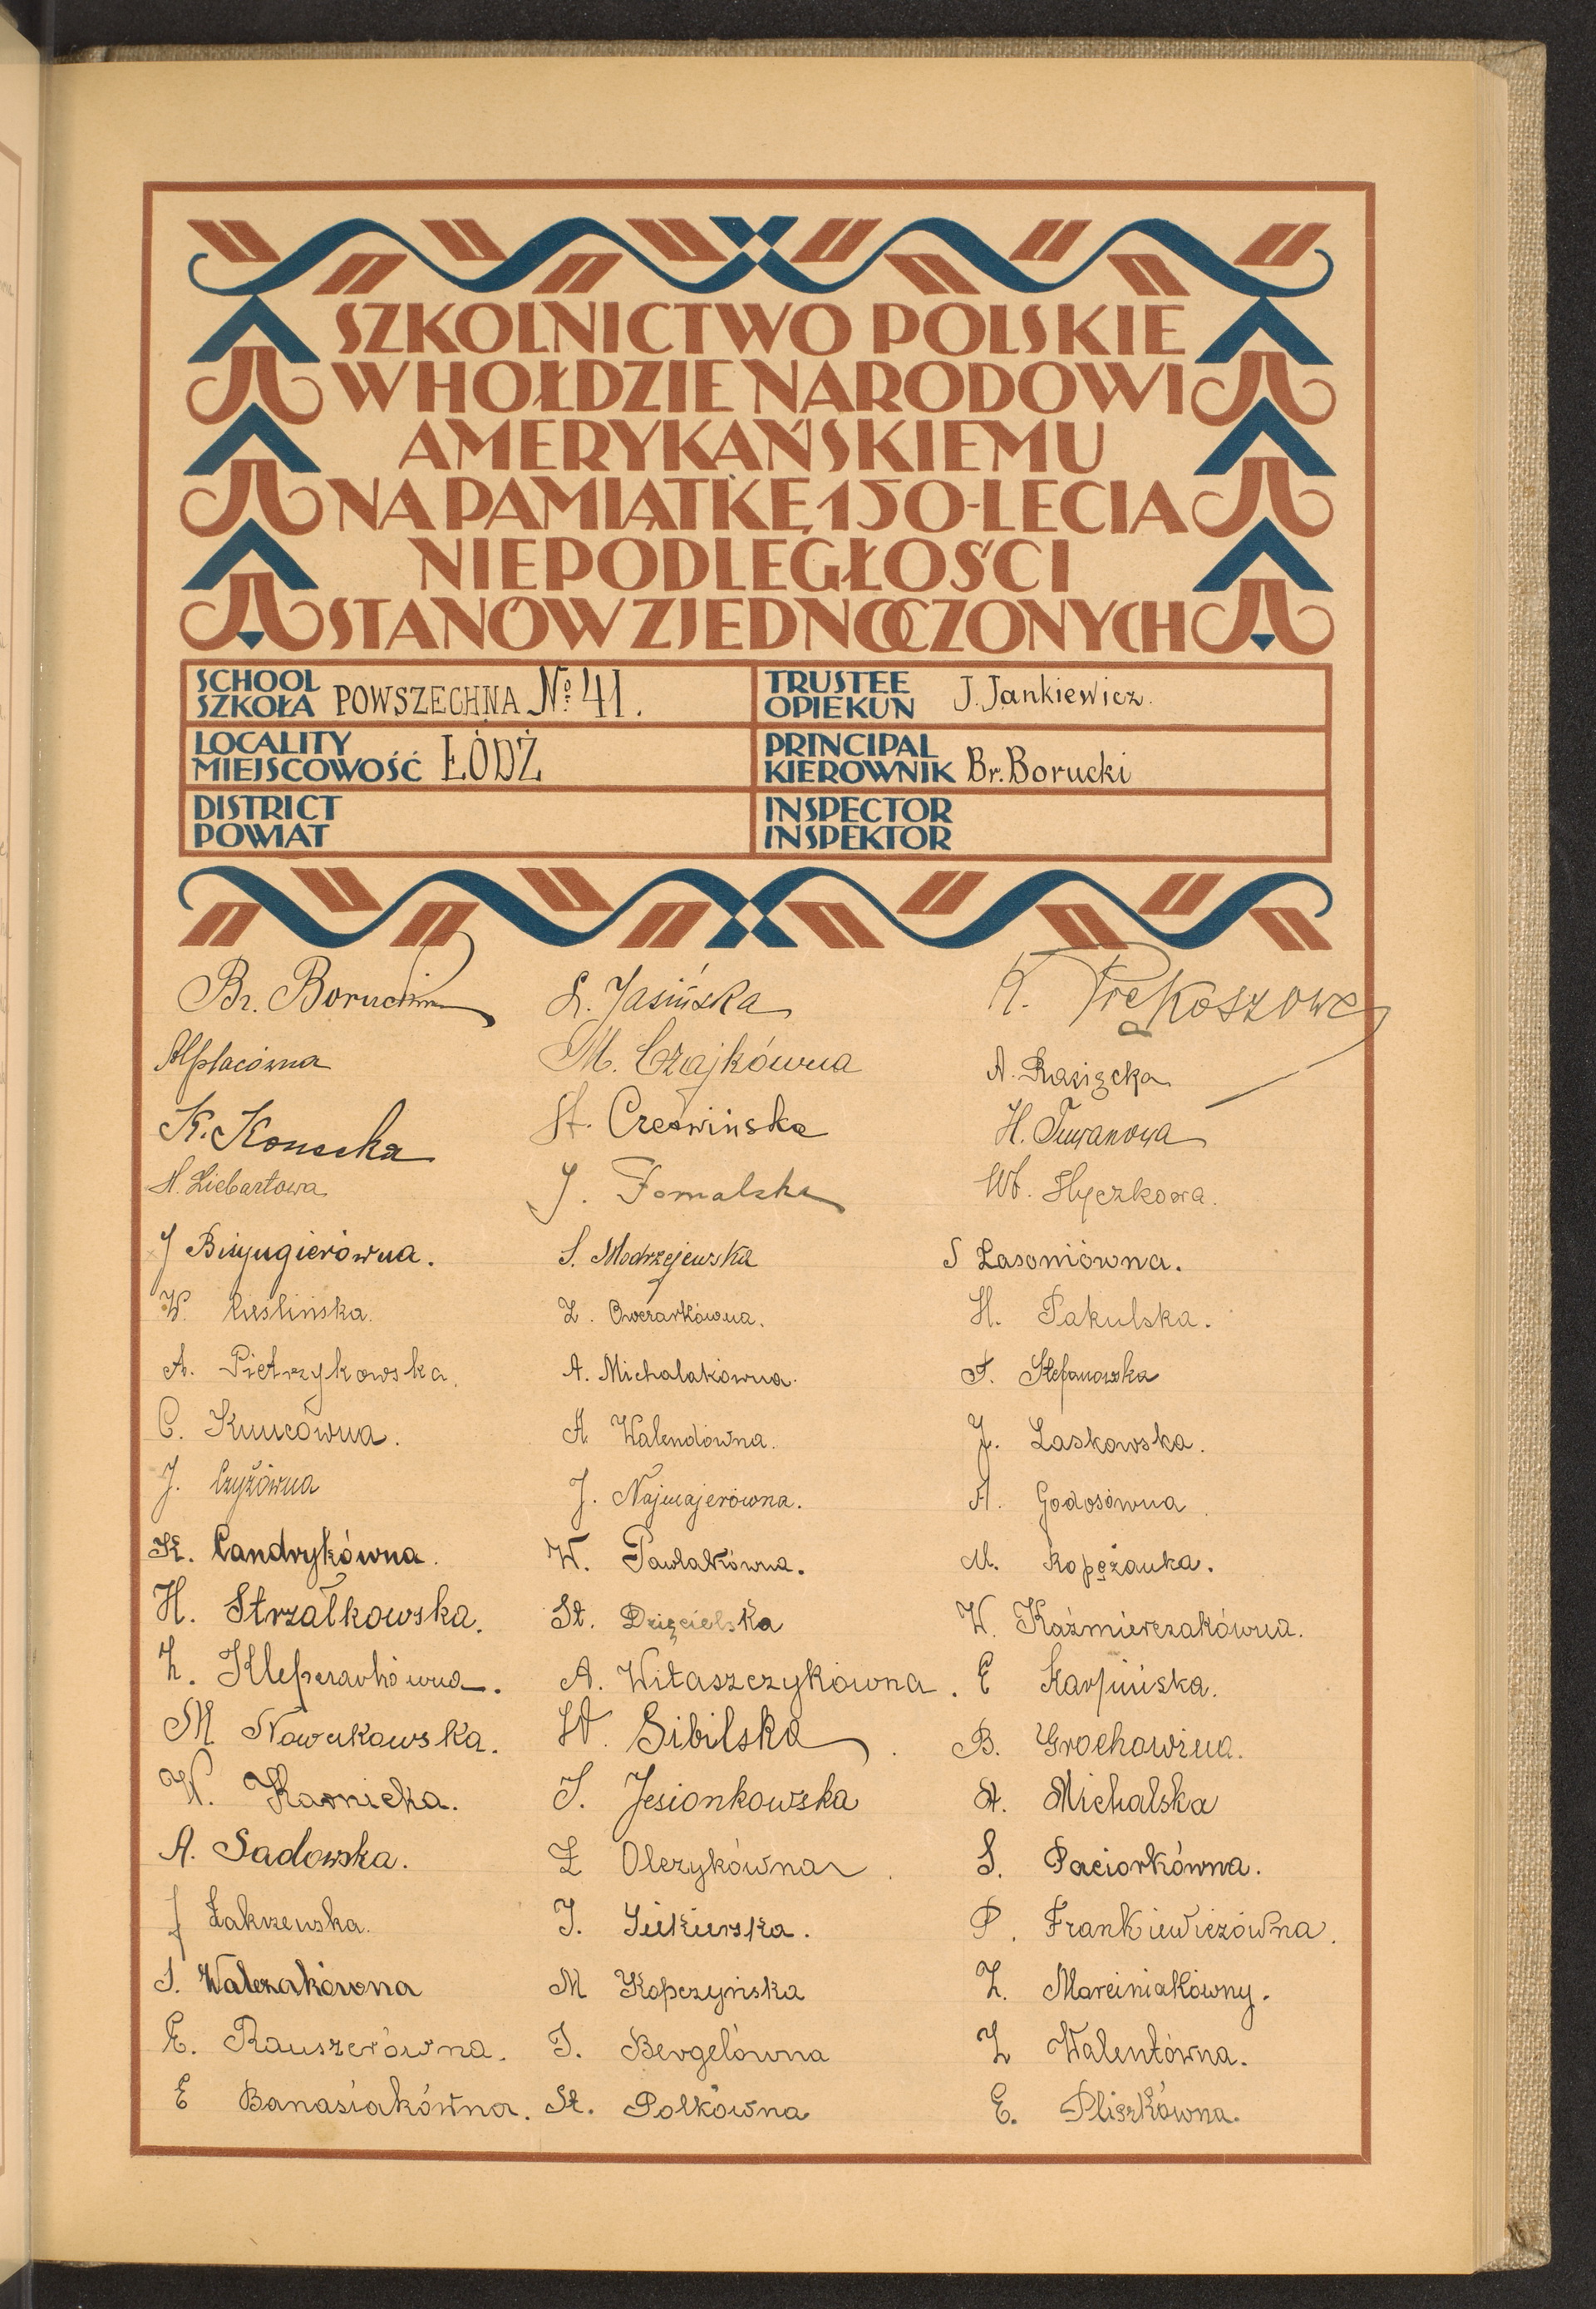 SZKOLNICTWO POLSKIE
W HOŁDZIE NARODOWI
AMERYKAŃSKIEMU
NA PAMIĄTKĘ 150-LECIA
NIEPODLEGŁOŚCI
STANÓW ZJEDNOCZONYCH
SCHOOL
SZKOŁA POWSZECHNA № 41.
TRUSTEE
OPIEKUN J. Jankiewicz.
LOCALITY
MIEJSCOWOŚĆ ŁÓDŹ
PRINCIPAL
KIEROWNIK Br. Borucki
DISTRICT
POWIAT
INSPECTOR
INSPEKTOR
Br. Borucki
K. Konecka
H. Liebartowa
W. Cieslińska.
A. Pietrzykowska.
C. Kuncówna.
J. Czyżówna
K. Candrykówna.
H. Strzałkowska.
M Nowakowska.
W. Karnicka.
A. Sadowska.
J Zakrzewska.
S. Walczakówna
E. Rauszerówna.
E Banasiakówna.
L. Jasińska
M. Czajkówna
St. Czerwińska
J. Fomalska
S. Modrzejewska
Z. Owczarkówna.
A. Michalakówna.
A Walendówna.
J. Najmajerówna.
W. Pawlakówna.
St. Dzięcielska
A. Witaszczykówna.
W. Sibilska.
I. Jesionkowska
Z Olczykówna.
M Kopczyńska
I. Bergelówna
St. Polkówna
K. Prękoszowa
A. Rasięcka
S Lasoniówna.
H. Pakulska.
F. Stefanowska
J. Laskowska.
A. Godosówna.
W. Kaźmierczakówna.
E Karpińska.
B. Grochowina.
A. Michalska
S. Paciorkówna.
P. Frankiewiczówna.
Z. Marciniakówny.
Z Walentówna.
E. Pliszkówna.